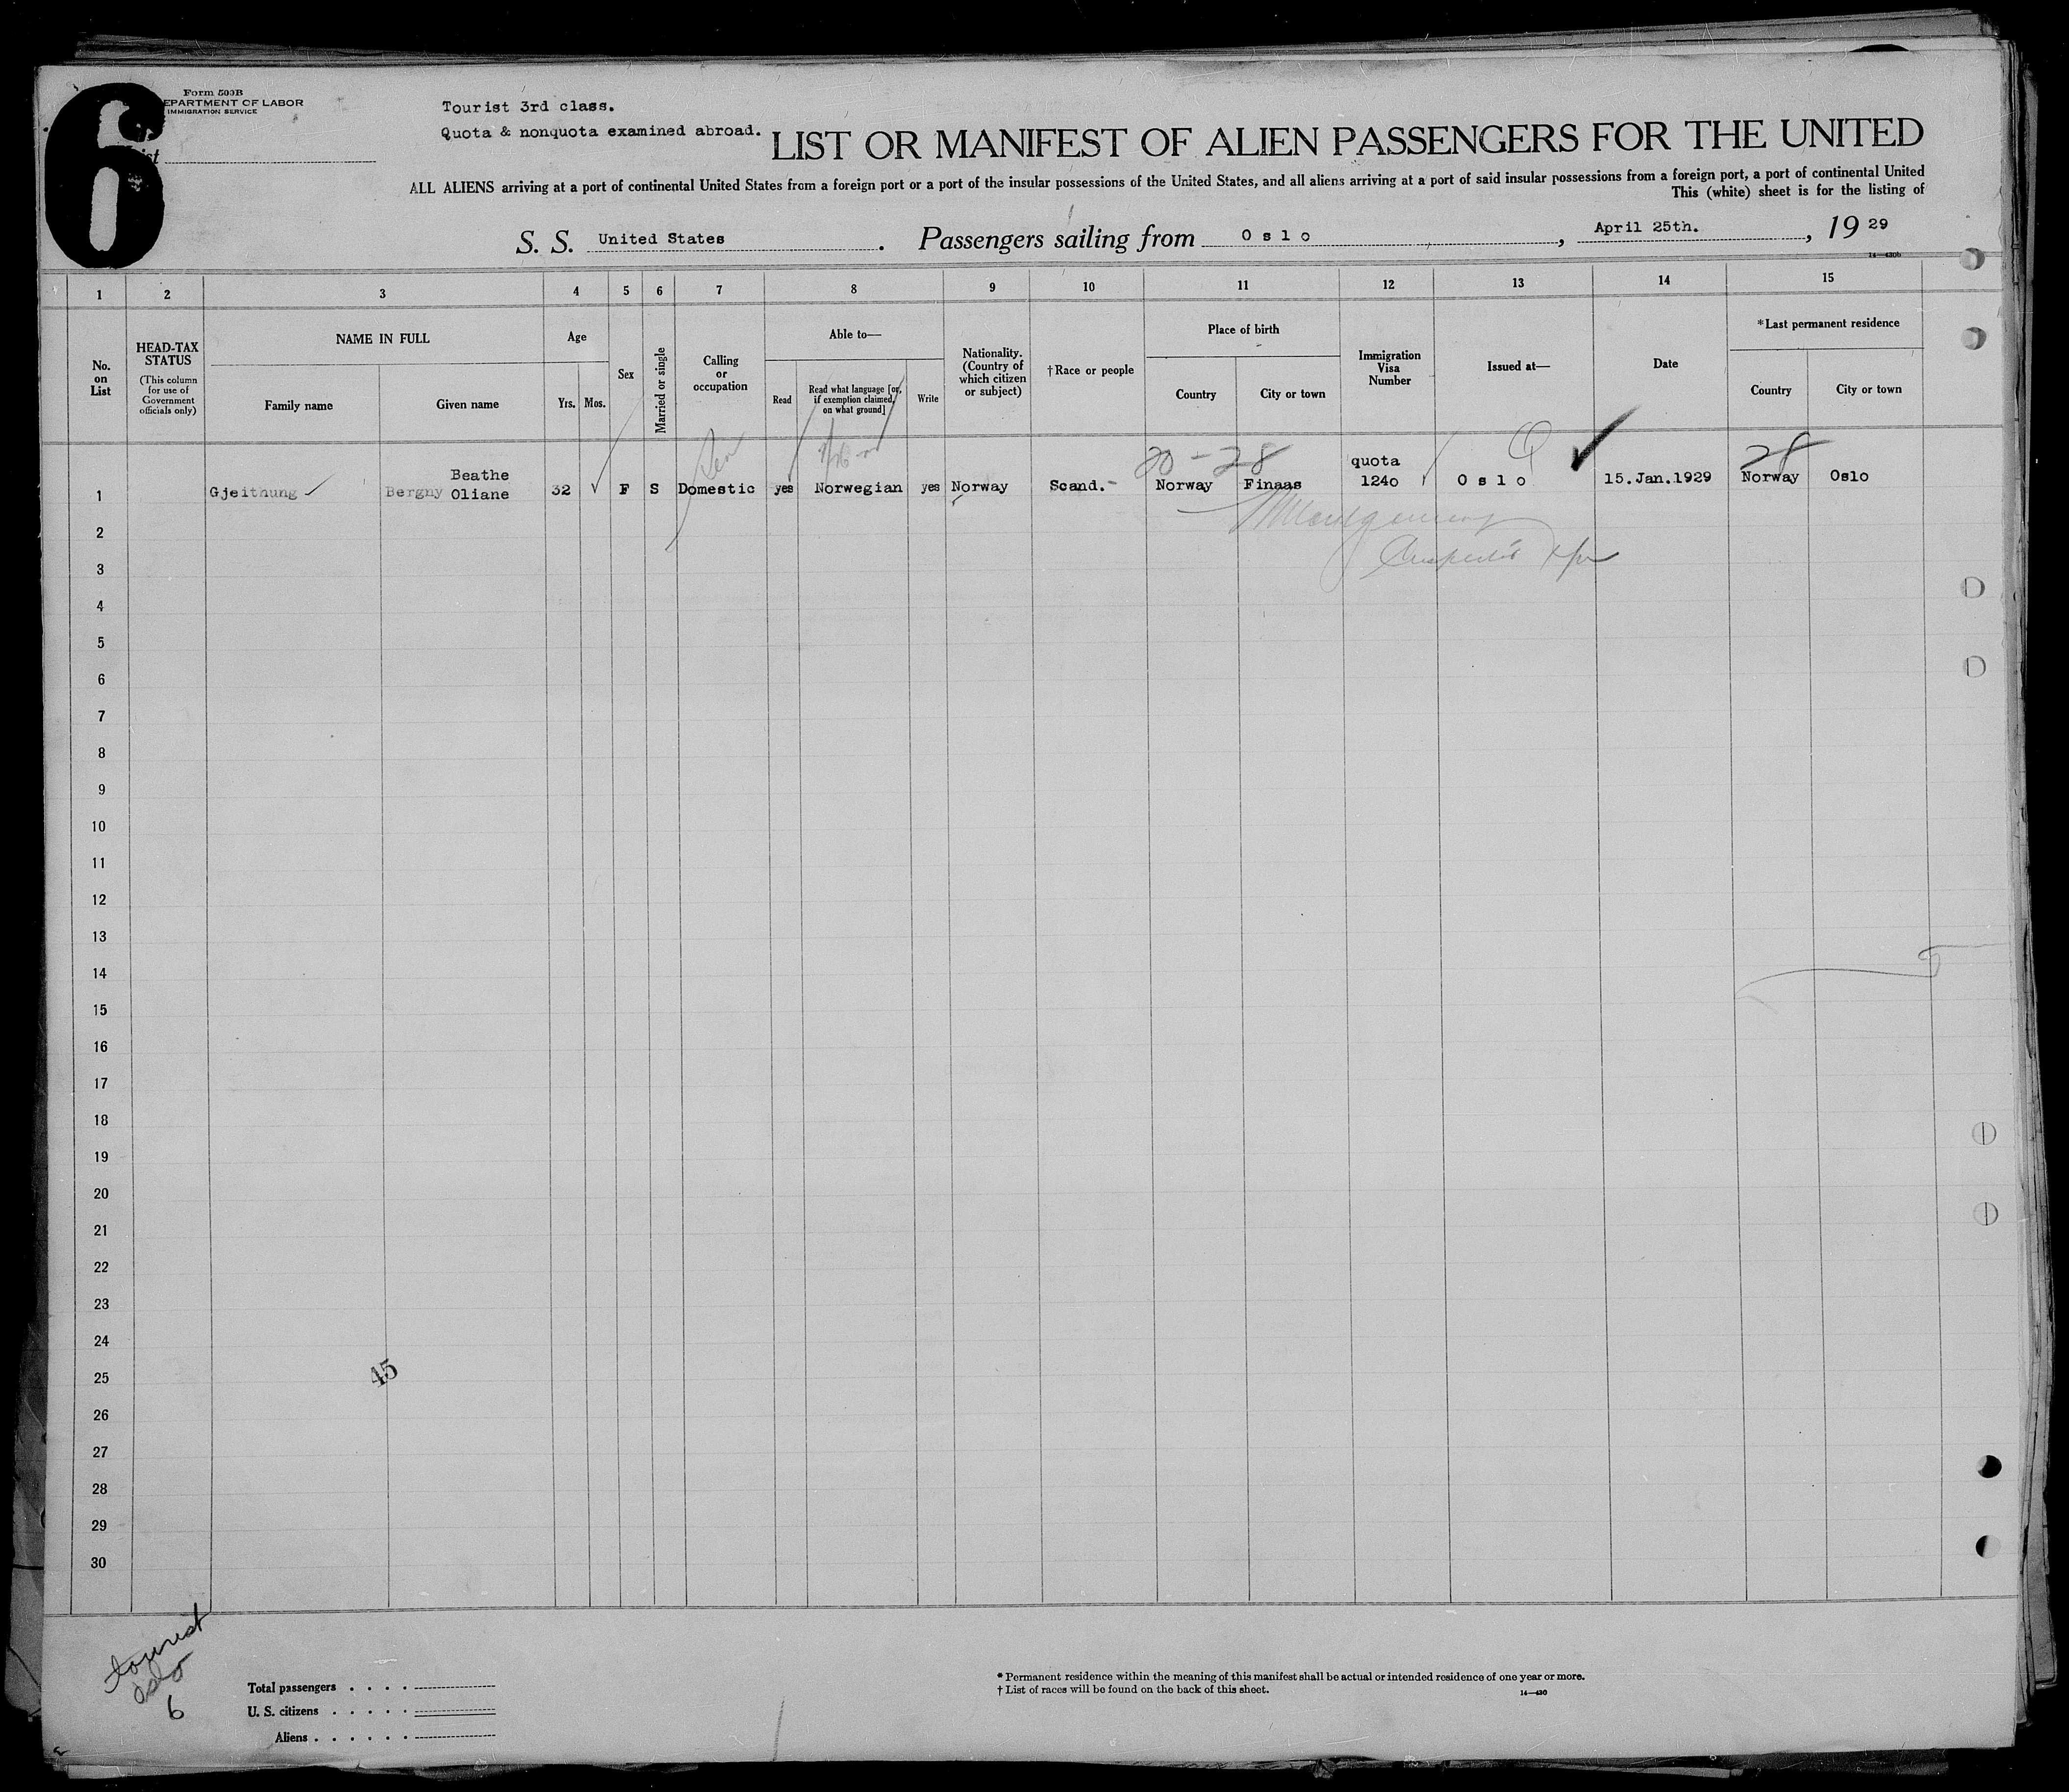 6
Form 500B
DEPARTMENT OF LABOR
IMMIGRATION SERVICE
List
Tourist 3rd class.
Quota & nonquota examined abroad.
LIST OR MANIFEST OF ALIEN PASSENGERS FOR THE UNITED
ALL ALIENS arriving at a port of continental United States from a foreign port or a port of the insular possessions of the United States, and all aliens arriving at a port of said insular possessions from a foreign port, a port of continental United
This (white) sheet is for the listing of
S. S. United States. Passengers sailing from Oslo, April 25th., 1929
14—430b
1 2 3 4 5 6 7 8 9 10 11 12 13 14 15
No. on List
HEAD-TAX STATUS
(This column for use of Government officials only)
NAME IN FULL
Family name
Given name
Age
Yrs.
Mos.
Sex
Married or single
Calling or occupation
Able to—
Read
Read what language [or, if exemption claimed, on what ground]
Write
Nationality. (Country of which citizen or subject)
†Race or people
Place of birth
Country
City or town
Immigration Visa Number
Issued at—
Date
*Last permanent residence
Country
City or town
20-28 Q 28
Beathe quota
1 Gjeithung Bergny Oliane 32 F S Domestic yes Norwegian yes Norway Scand.- Norway Finaas 1240 Oslo 15.Jan.1929 Norway Oslo
2
3
4
5
6
7
8
9
10
11
12
13
14
15
16
17
18
19
20
21
22
23
24
25 45
26
27
28
29
30
tourist
oslo
6
Total passengers . . . .
U. S. citizens . . . . .
Aliens . . . . . .
* Permanent residence within the meaning of this manifest shall be actual or intended residence of one year or more.
† List of races will be found on the back of this sheet.
14—430